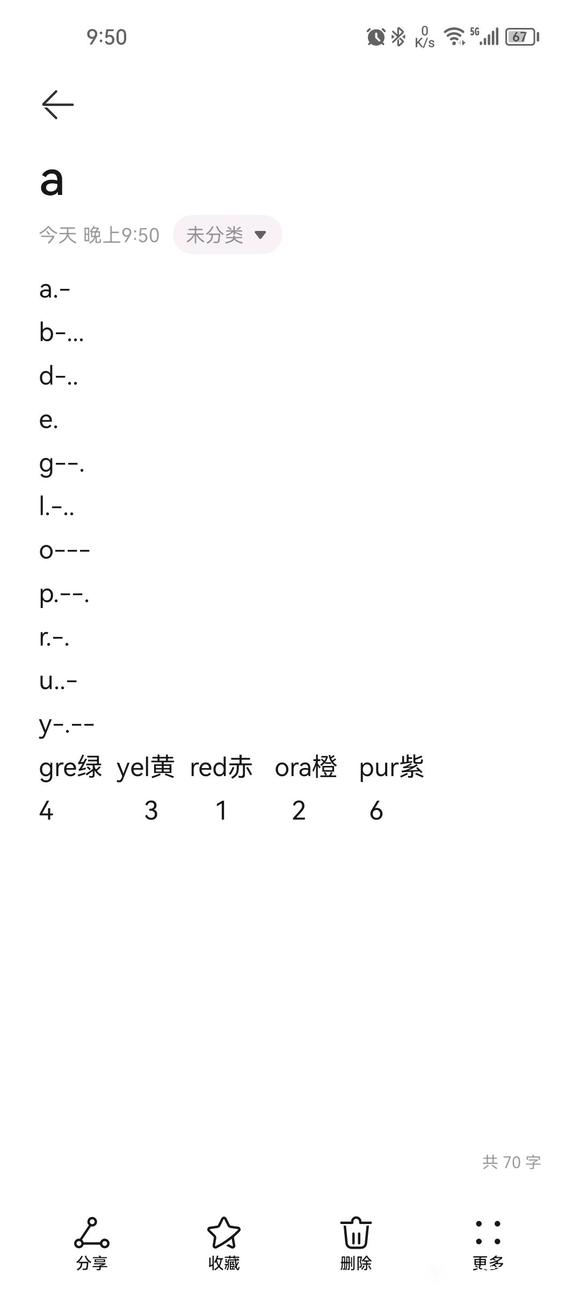 9:50 0 K/s 5G 67
a
今天 晚上9:50 未分类
a.-
b-...
d-..
e.
g--.
l.-..
o---
p.--.
r.-.
u..-
y-.--
gre绿 yel黄 red赤 ora橙 pur紫
4 3 1 2 6
共 70 字
分享 收藏 删除 更多